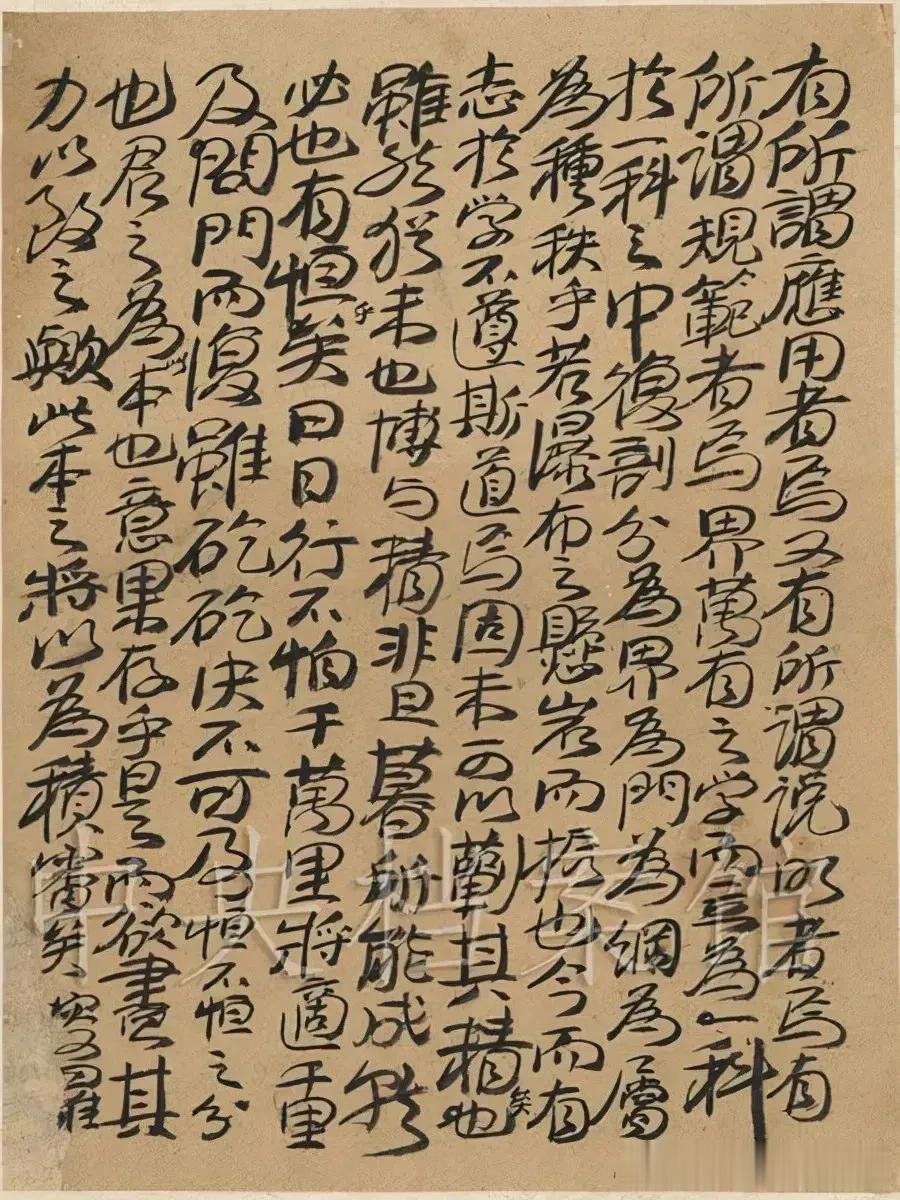 有所謂應用者焉又有所謂说明者焉有
所谓規範者焉界萬有之学而立為一科
於一科之中復剖分為界為門為綱為屬
為種秩乎若瀑布之懸岩而振也今而有
志於学不遵斯道焉固未可以蕲其精也矣
雖然猶未也博与精非旦暮所能成就
必也有恒乎矣日日行不怕千萬里將適千里
及閭門而復雖矻矻決不可及恒不恒之分
也君之為此本也意果存乎是而欲盡其
力以致之歟此本之將以為積蓄矣
中央档案馆